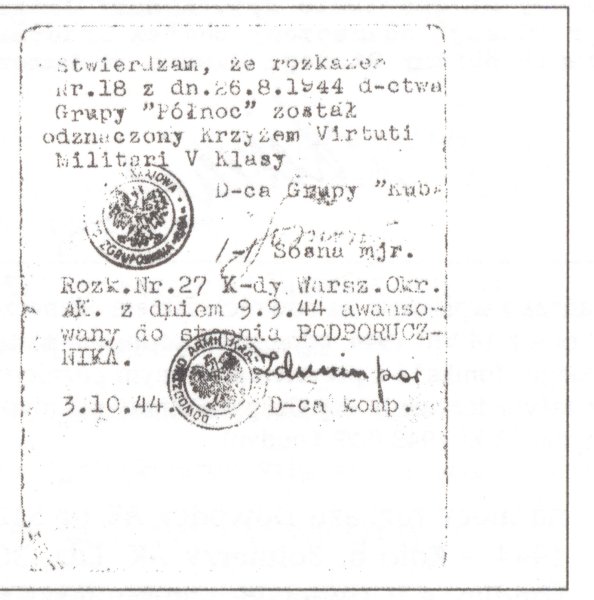 Stwierdzam, że rozkazem
Nr.18 z dn.26.8.1944 d-ctwa
Grupy "Północ" został
odznaczony Krzyżem Virtuti
Militari V Klasy
D-ca Grupy "Kuba
/-/ Sosna mjr.
Rozk.Nr.27 K-dy Warsz.Okr.
AK. z dniem 9.9.44 awanso-
wany do stopnia PODPORUCZ-
NIKA.
3.10.44. D-ca komp.
ZGRUPOWANIA
DOWÓDZTWO ARMII KRAJ
por